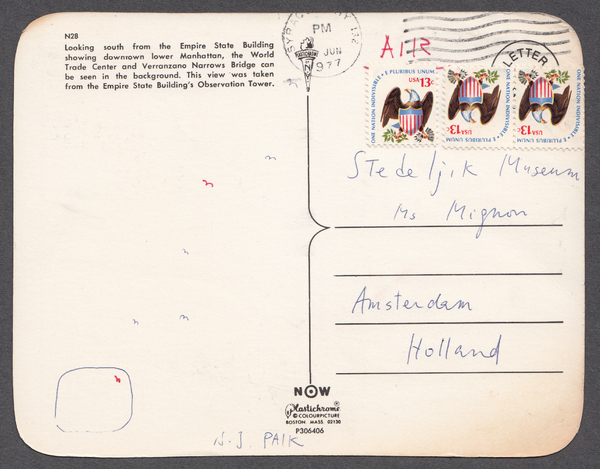 N28
Looking south from the Empire State Building
showing downrown lower Manhattan, the World
Trade Center and Verranzano Narrows Bridge can
be seen in the background. This view was taken
from the Empire State Building's Observation Tower.
PM
JUN
1977
AIR
LETTER
E PLURIBUS UNUM
USA 13c
ONE NATION INDIVISIBLE
E PLURIBUS UNUM
USA 13c
ONE NATION INDIVISIBLE
E PLURIBUS UNUM
USA 13c
ONE NATION INDIVISIBLE
Stedeljik Museum
Ms Mignon
Amsterdam
Holland
NOW
Plastichrome®
© COLOURPICTURE
BOSTON. MASS. 02130
P306406
N.J PAIK